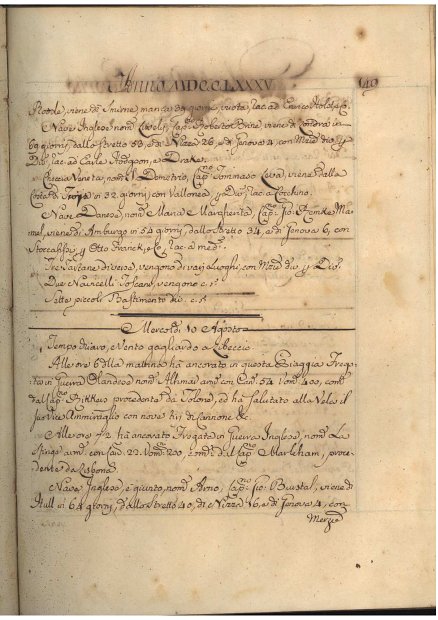 Anno MDCCLXXXV 140
viene di Smirne, manca 39 giorni, vuota, rac: ad Enrico
Nave Inglese nom: Lively, Cap: Roberto viene di Londra in
69 giorni, dallo stretto 58, e di Nizza 26, e di Genova 4, con Mer: div: p
Div: rac: ad Earle Hodgson, e Drake.
Veneta, nom: Demetrio, Cap: Tommaso viene dalla
Costa di in 32 giorni; con Vallonea, p Div: rac: a
Nave Danese, nom: Maria Margherita, Cap: Gio:
viene di Amburgo in 54 giorni, dallo stretto 34, e di Genova 6, con
p Otto Franck, e C. rac: a med:
Tre Tartane diverse, vengono di varj Luoghi, con Mer: div: p Div:
Due Navicelli Toscani, vengono c: s:
Sette piccoli Bastimenti div: c: s:
Mercoldì 10 Agosto
Tempo chiaro, e Vento gagliardo a Libeccio.
Alle ore 6 della mattina hà ancorato in questa Spiaggia Frega-
ta in Guerra Olandese nom: arm: con Can: 54 Uom: 400, com:
dal Cap: procedente da Tolone, ed hà salutato alla Vela il
Vice Ammiraglio con nove tiri di Cannone &c
Alle ore hà ancorato Fregata in Guerra Inglese, nom: La
arm: con Can: 22 Uom: 200, com: dal Cap: Markham, proce-
dente da Lisbona
Nave Inglese, è giunto, nom: Arno, Cap: Gio: viene di
Hull in 64 giorni, dallo stretto 40, di Nizza 16, e di Genova 4, con
Merzie